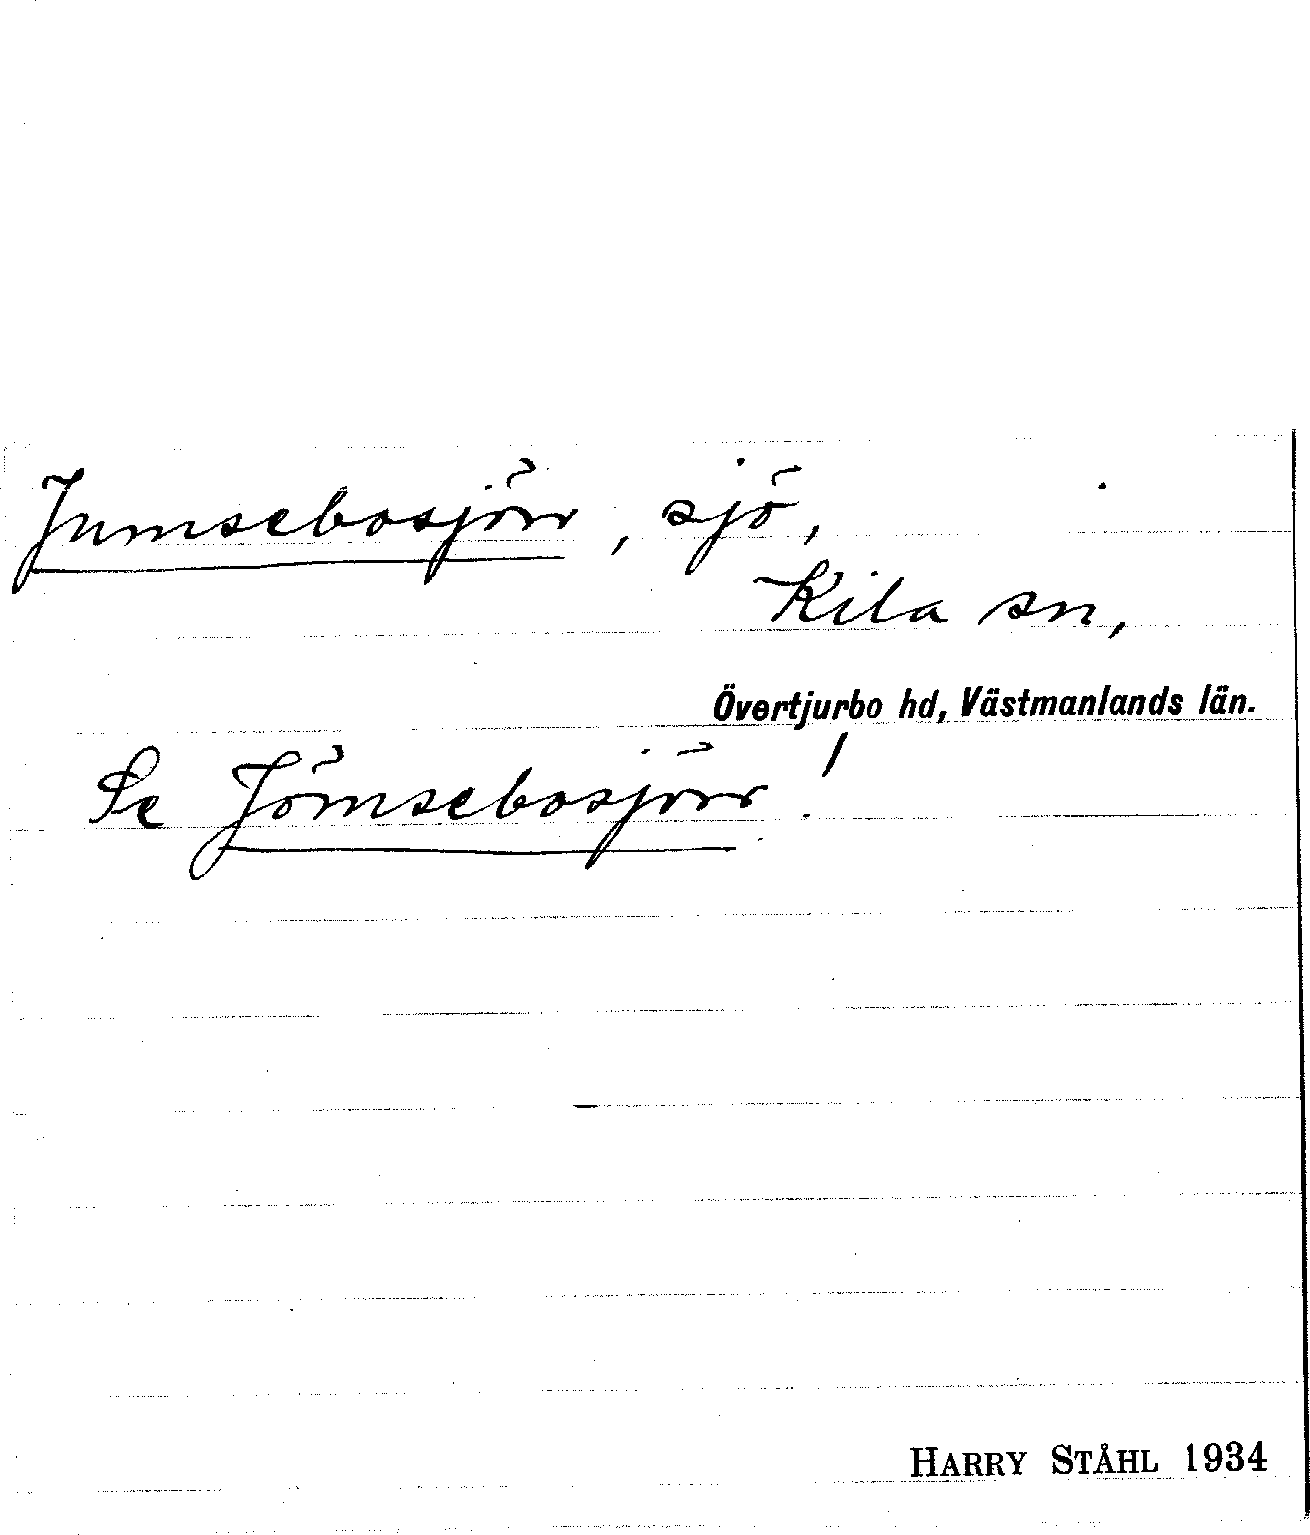 Jumsebosjön, sjö,
Kila sn,
Övertjurbo hd, Västmanlands län.
Se Jömsebosjön!
HARRY STÅHL 1934